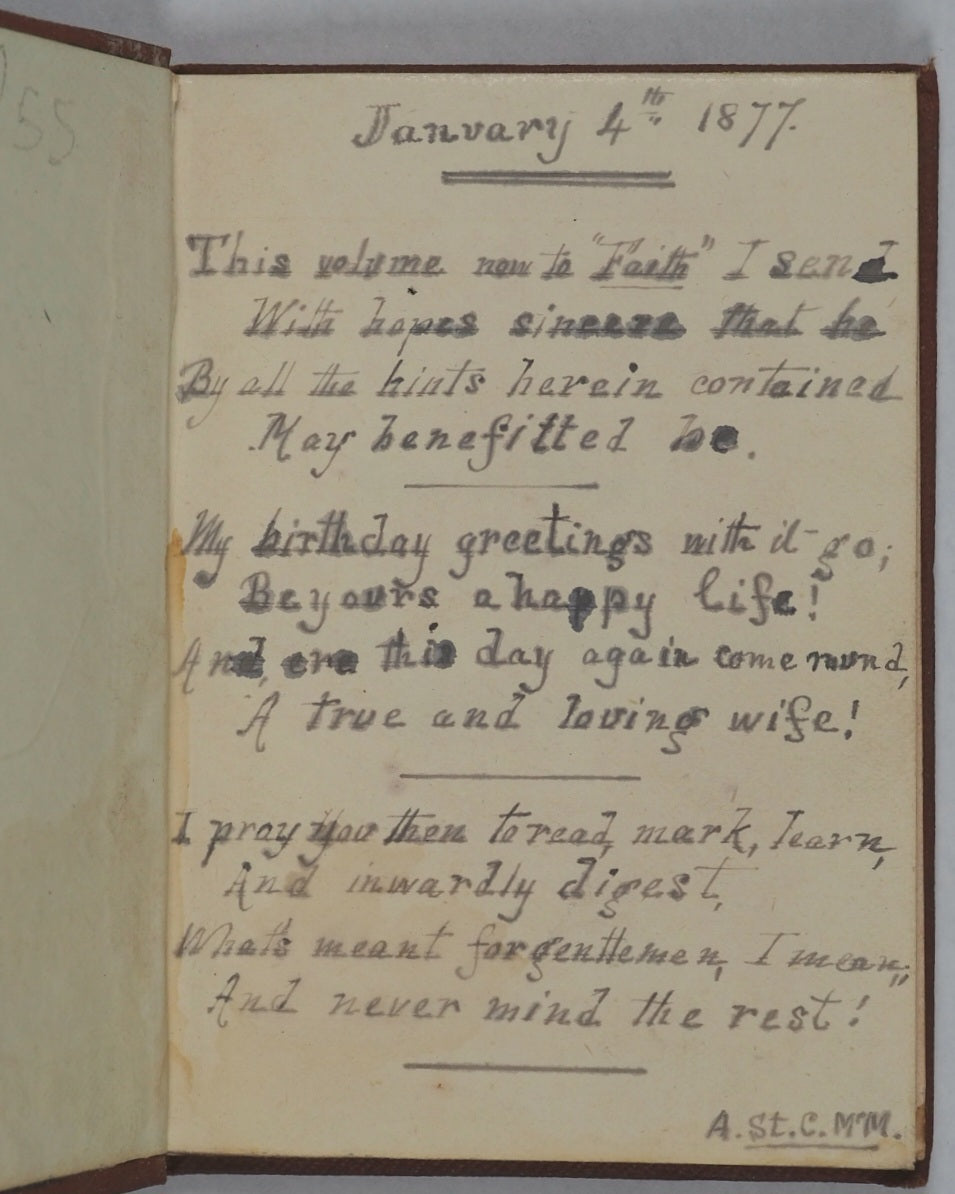 55
January 4th 1877.
This volume now to "Faith" I send
With hopes sincere that he
By all the hints herein contained
May benefitted be.
My birthday greetings with it go;
Be yours a happy life!
And, ere this day again come round,
A true and loving wife!
I pray you then to read, mark, learn,
And inwardly digest,
What's meant for gentlemen, I mean;
And never mind the rest!
A. St. C. McM.